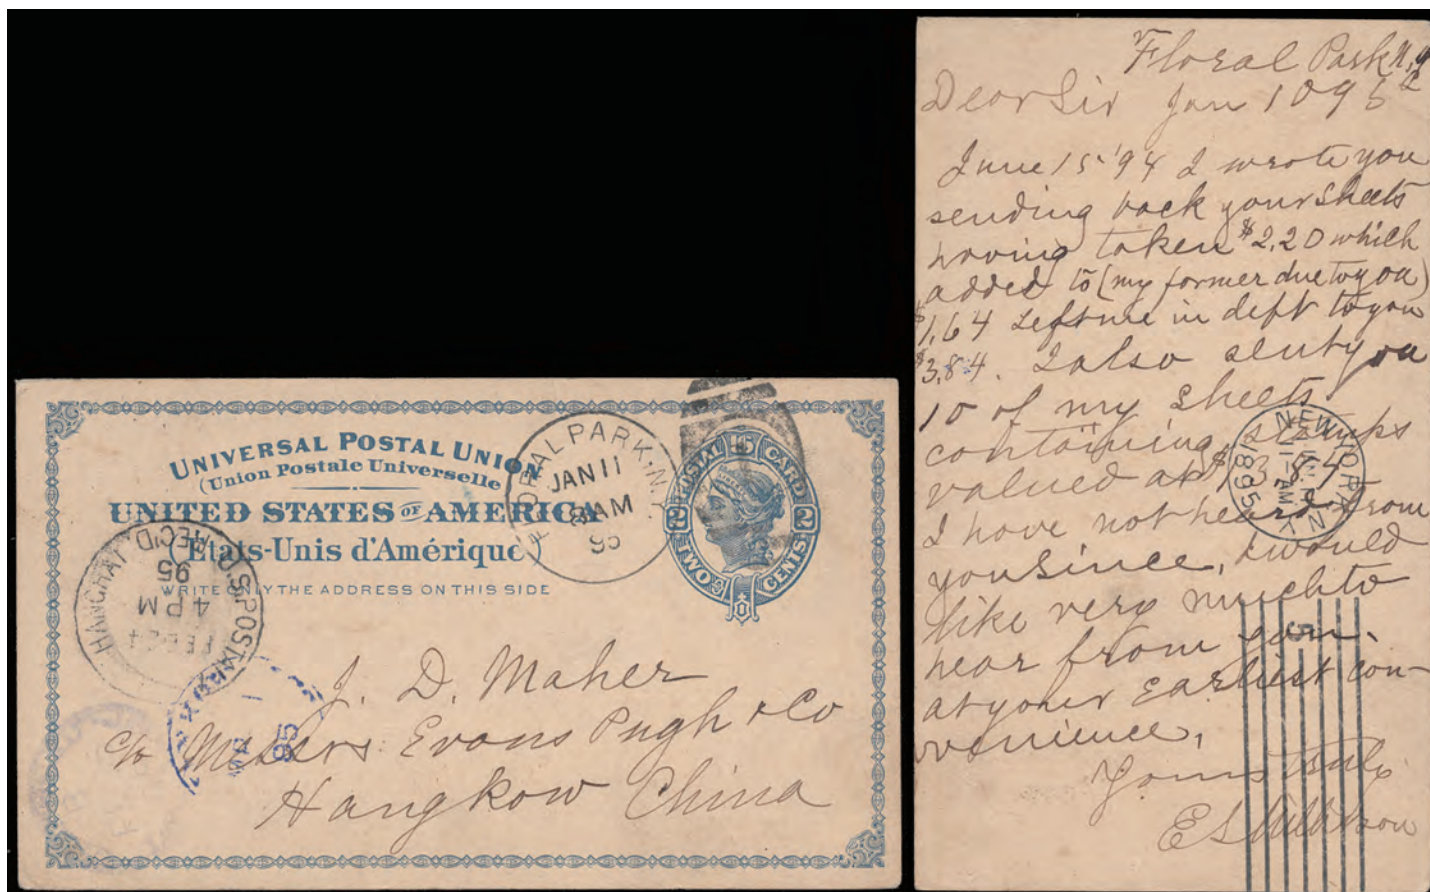 UNIVERSAL POSTAL UNION
(Union Postale Universelle)
UNITED STATES OF AMERICA
(États-Unis d'Amérique)
WRITE ONLY THE ADDRESS ON THIS SIDE
POSTAL CARD
2 TWO CENTS 2
FLORAL PARK, N.Y.
JAN 11
8 AM
95
U.S. POSTAL SHANGHAI REC'D.
FEB 24
4 PM
95
95
J. D. Maher
c/o Messrs Evans Pugh & Co
Hangkow China
Floral Park N.Y
Dear Sir Jan 10 95
June 15 '94 I wrote you
sending back your sheets
having taken $2,20 which
added to (my former due to you)
$1,64 left me in deft to you
$3,84. I also sent you
10 of my sheets
containing stamps
valued at $13.84
I have not heard from
you since, & would
like very much to
hear from you.
at your earliest con-
venience,
Yours truly
NEW YORK N.Y.
1-AM
1895
5